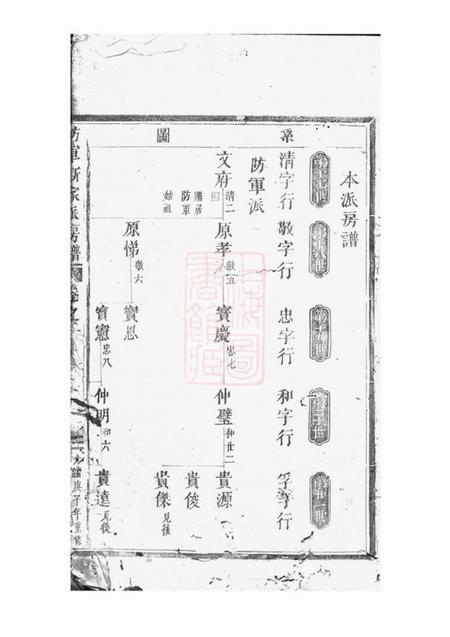 本派房譜
系圖
清字行
敬字行
忠字行
和字行
孚字行
防軍派
文府 清二
原孝 敬五
寶慶 忠七
仲璧 和廿二
貴源
貴俊
貴傑 見後
遷居防軍始祖
原悌 敬六
寶恩
寶憲 忠八
仲明 和六
貴達 見後
派房譜
庚子年重修
上海圖書館藏